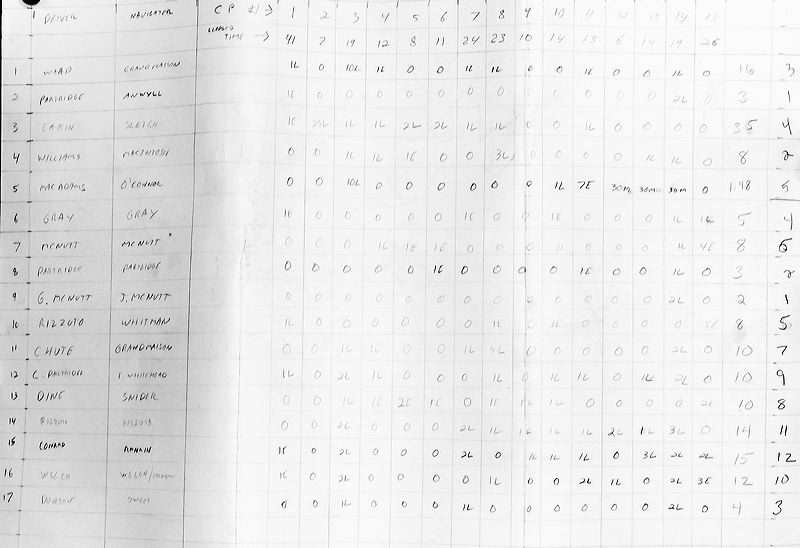 DRIVER NAVIGATOR CP # → 1 2 3 4 5 6 7 8 9 10 11 12 13 14 15
ELAPSED TIME → 41 7 19 12 8 11 24 23 10 14 15 6 14 19 26
1 WARD GRANDMAISON 1L 0 10L 1L 0 0 1L 1L 0 0 1E 0 0 1L 0 16 3
2 PARTRIDGE ANWYLL 1E 0 0 0 0 0 0 0 0 0 0 0 0 2L 0 3 1
3 EAKIN SLEIGH 1E 1L 1L 2L 2L 1L 1L 0 0 1L 0 0 0 0 35 4
4 WILLIAMS MACINTOSH 0 0 1L 1L 1E 0 0 3L 0 0 0 0 1L 1L 0 8 2
5 MACADAMS O'CONNOR 0 0 10L 0 0 0 0 0 0 1L 7E 30M 30M 30M 0 1:48 5
6 GRAY GRAY 1E 0 0 0 0 0 1E 0 0 1E 0 0 0 1L 1L 5 4
7 MCNUTT MCNUTT 0 0 0 1L 1E 1E 0 0 0 0 0 0 0 1L 4E 8 6
8 PARTRIDGE PARTRIDGE 0 0 0 0 0 1E 0 0 0 0 1E 0 0 1L 0 3 2
9 G. MCNUTT J. MCNUTT 0 0 0 0 0 0 0 0 0 0 0 0 0 2L 0 2 1
10 RIZZUTO WHITMAN 1L 0 0 0 0 0 0 1L 0 1E 0 0 0 0 5E 8 5
11 CHUTE GRANDMAISON 0 0 1L 1E 0 0 1L 0 0 0 0 0 2L 0 10 7
12 C. PARTRIDGE T. WHITEHEAD 1L 0 2L 1L 0 0 0 1L 0 1L 1L 0 1L 2L 0 10 9
13 DINE SNIDER 0 0 1L 1E 2E 1E 0 1E 1L 1L 0 0 0 0 2E 10 8
14 RIZZUTO 0 0 2L 0 0 0 2L 1L 1L 1L 1L 2L 1L 3L 0 14 11
15 CONRAD RANKIN 1E 0 2L 0 0 0 2L 0 1L 1L 1L 0 3L 2L 2L 15 12
16 WELCH WELCH 1E 0 2L 0 0 0 0 1L 0 0 2L 1L 0 2L 3E 12 10
17 DUNCAN SWEET 0 0 1L 0 0 0 1L 0 0 0 0 0 0 2L 0 4 3